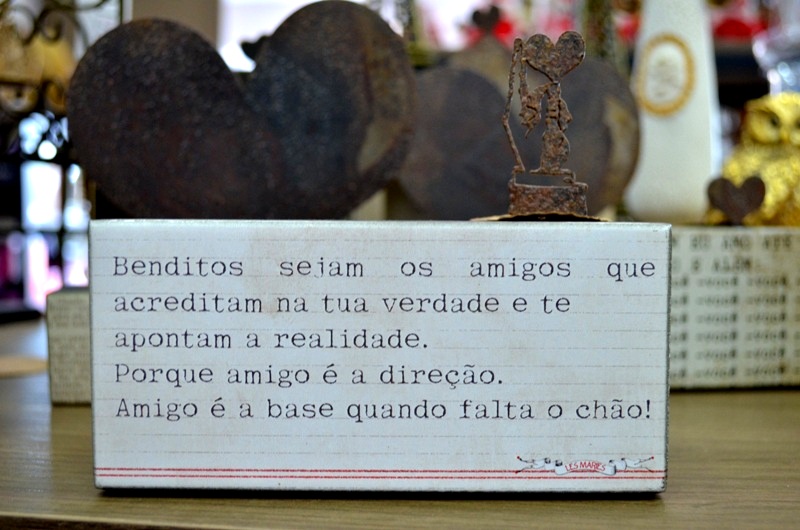 Benditos sejam os amigos que
acreditam na tua verdade e te
apontam a realidade.
Porque amigo é a direção.
Amigo é a base quando falta o chão!
LES MARIES